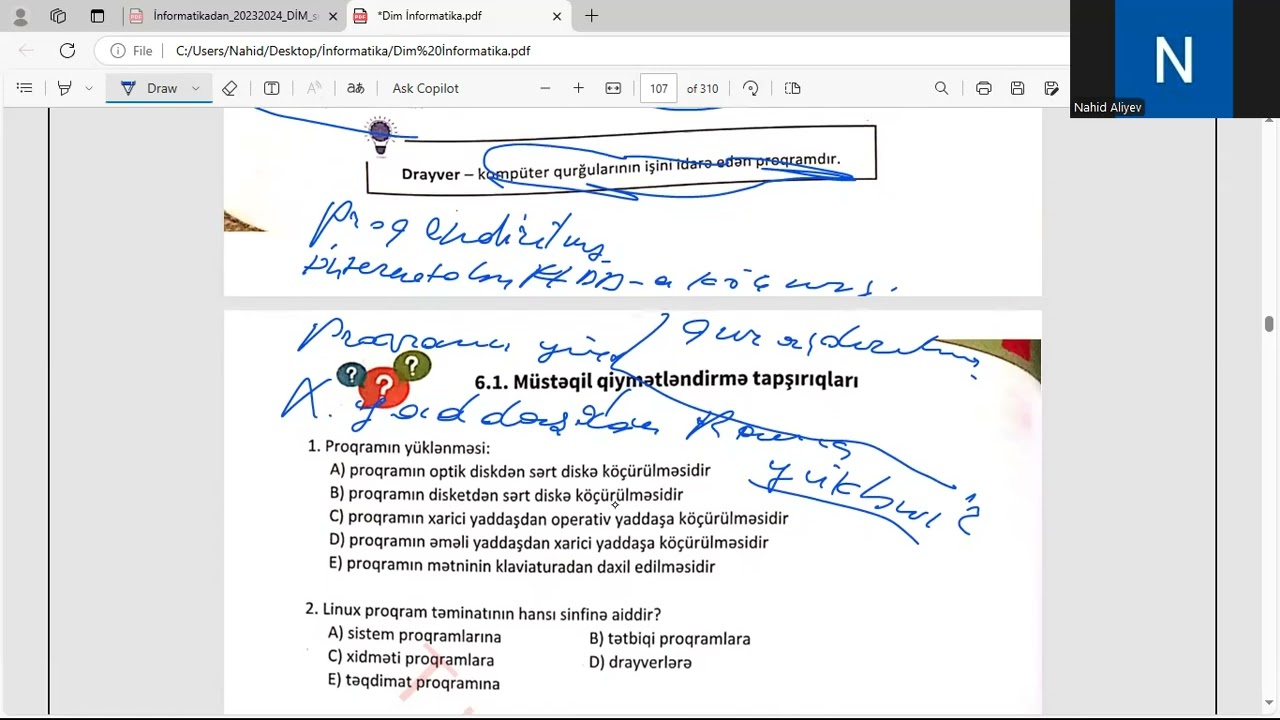 İnformatikadan_20232024_DİM_s
*Dim İnformatika.pdf
File
C:/Users/Nahid/Desktop/İnformatika/Dim%20İnformatika.pdf
Draw
Ask Copilot
107 of 310
N
Nahid Aliyev
Drayver – kompüter qurğularının işini idarə edən proqramdır.
HDD-a
6.1. Müstəqil qiymətləndirmə tapşırıqları
1. Proqramın yüklənməsi:
A) proqramın optik diskdən sərt diskə köçürülməsidir
B) proqramın disketdən sərt diskə köçürülməsidir
C) proqramın xarici yaddaşdan operativ yaddaşa köçürülməsidir
D) proqramın əməli yaddaşdan xarici yaddaşa köçürülməsidir
E) proqramın mətninin klaviaturadan daxil edilməsidir
2. Linux proqram təminatının hansı sinfinə aiddir?
A) sistem proqramlarına B) tətbiqi proqramlara
C) xidməti proqramlara D) drayverlərə
E) təqdimat proqramına